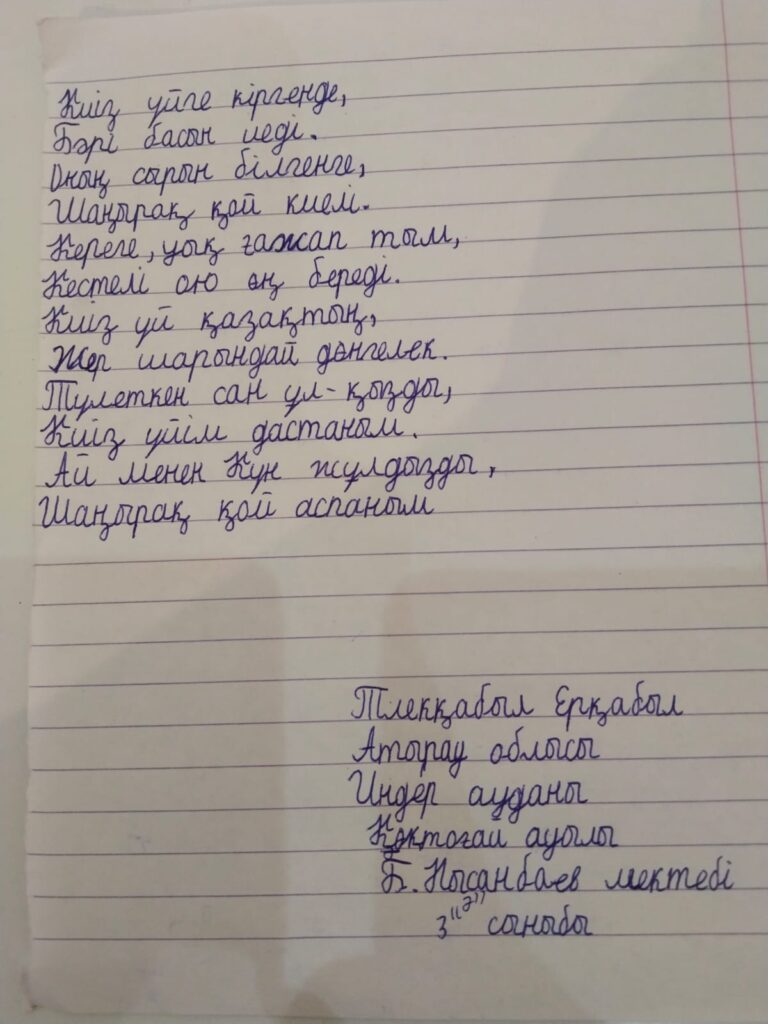 Киіз үйге кіргенде,
Бәрі басын иеді.
Оның сырын білгенге,
Шаңырақ қой киелі.
Кереге, уық ғажап тым,
Кестелі ою өң береді.
Киіз үй қазақтың,
Жер шарындай дөңгелек.
Түлеткен сан ұл-қызды,
Киіз үйім дастаным.
Ай менен Күн жұлдызды,
Шаңырақ қой аспаным
Тлекқабыл Ерқабыл
Атырау облысы
Индер ауданы
Көктоғай ауылы
Б. Нысанбаев мектебі
3 "Ә" сыныбы